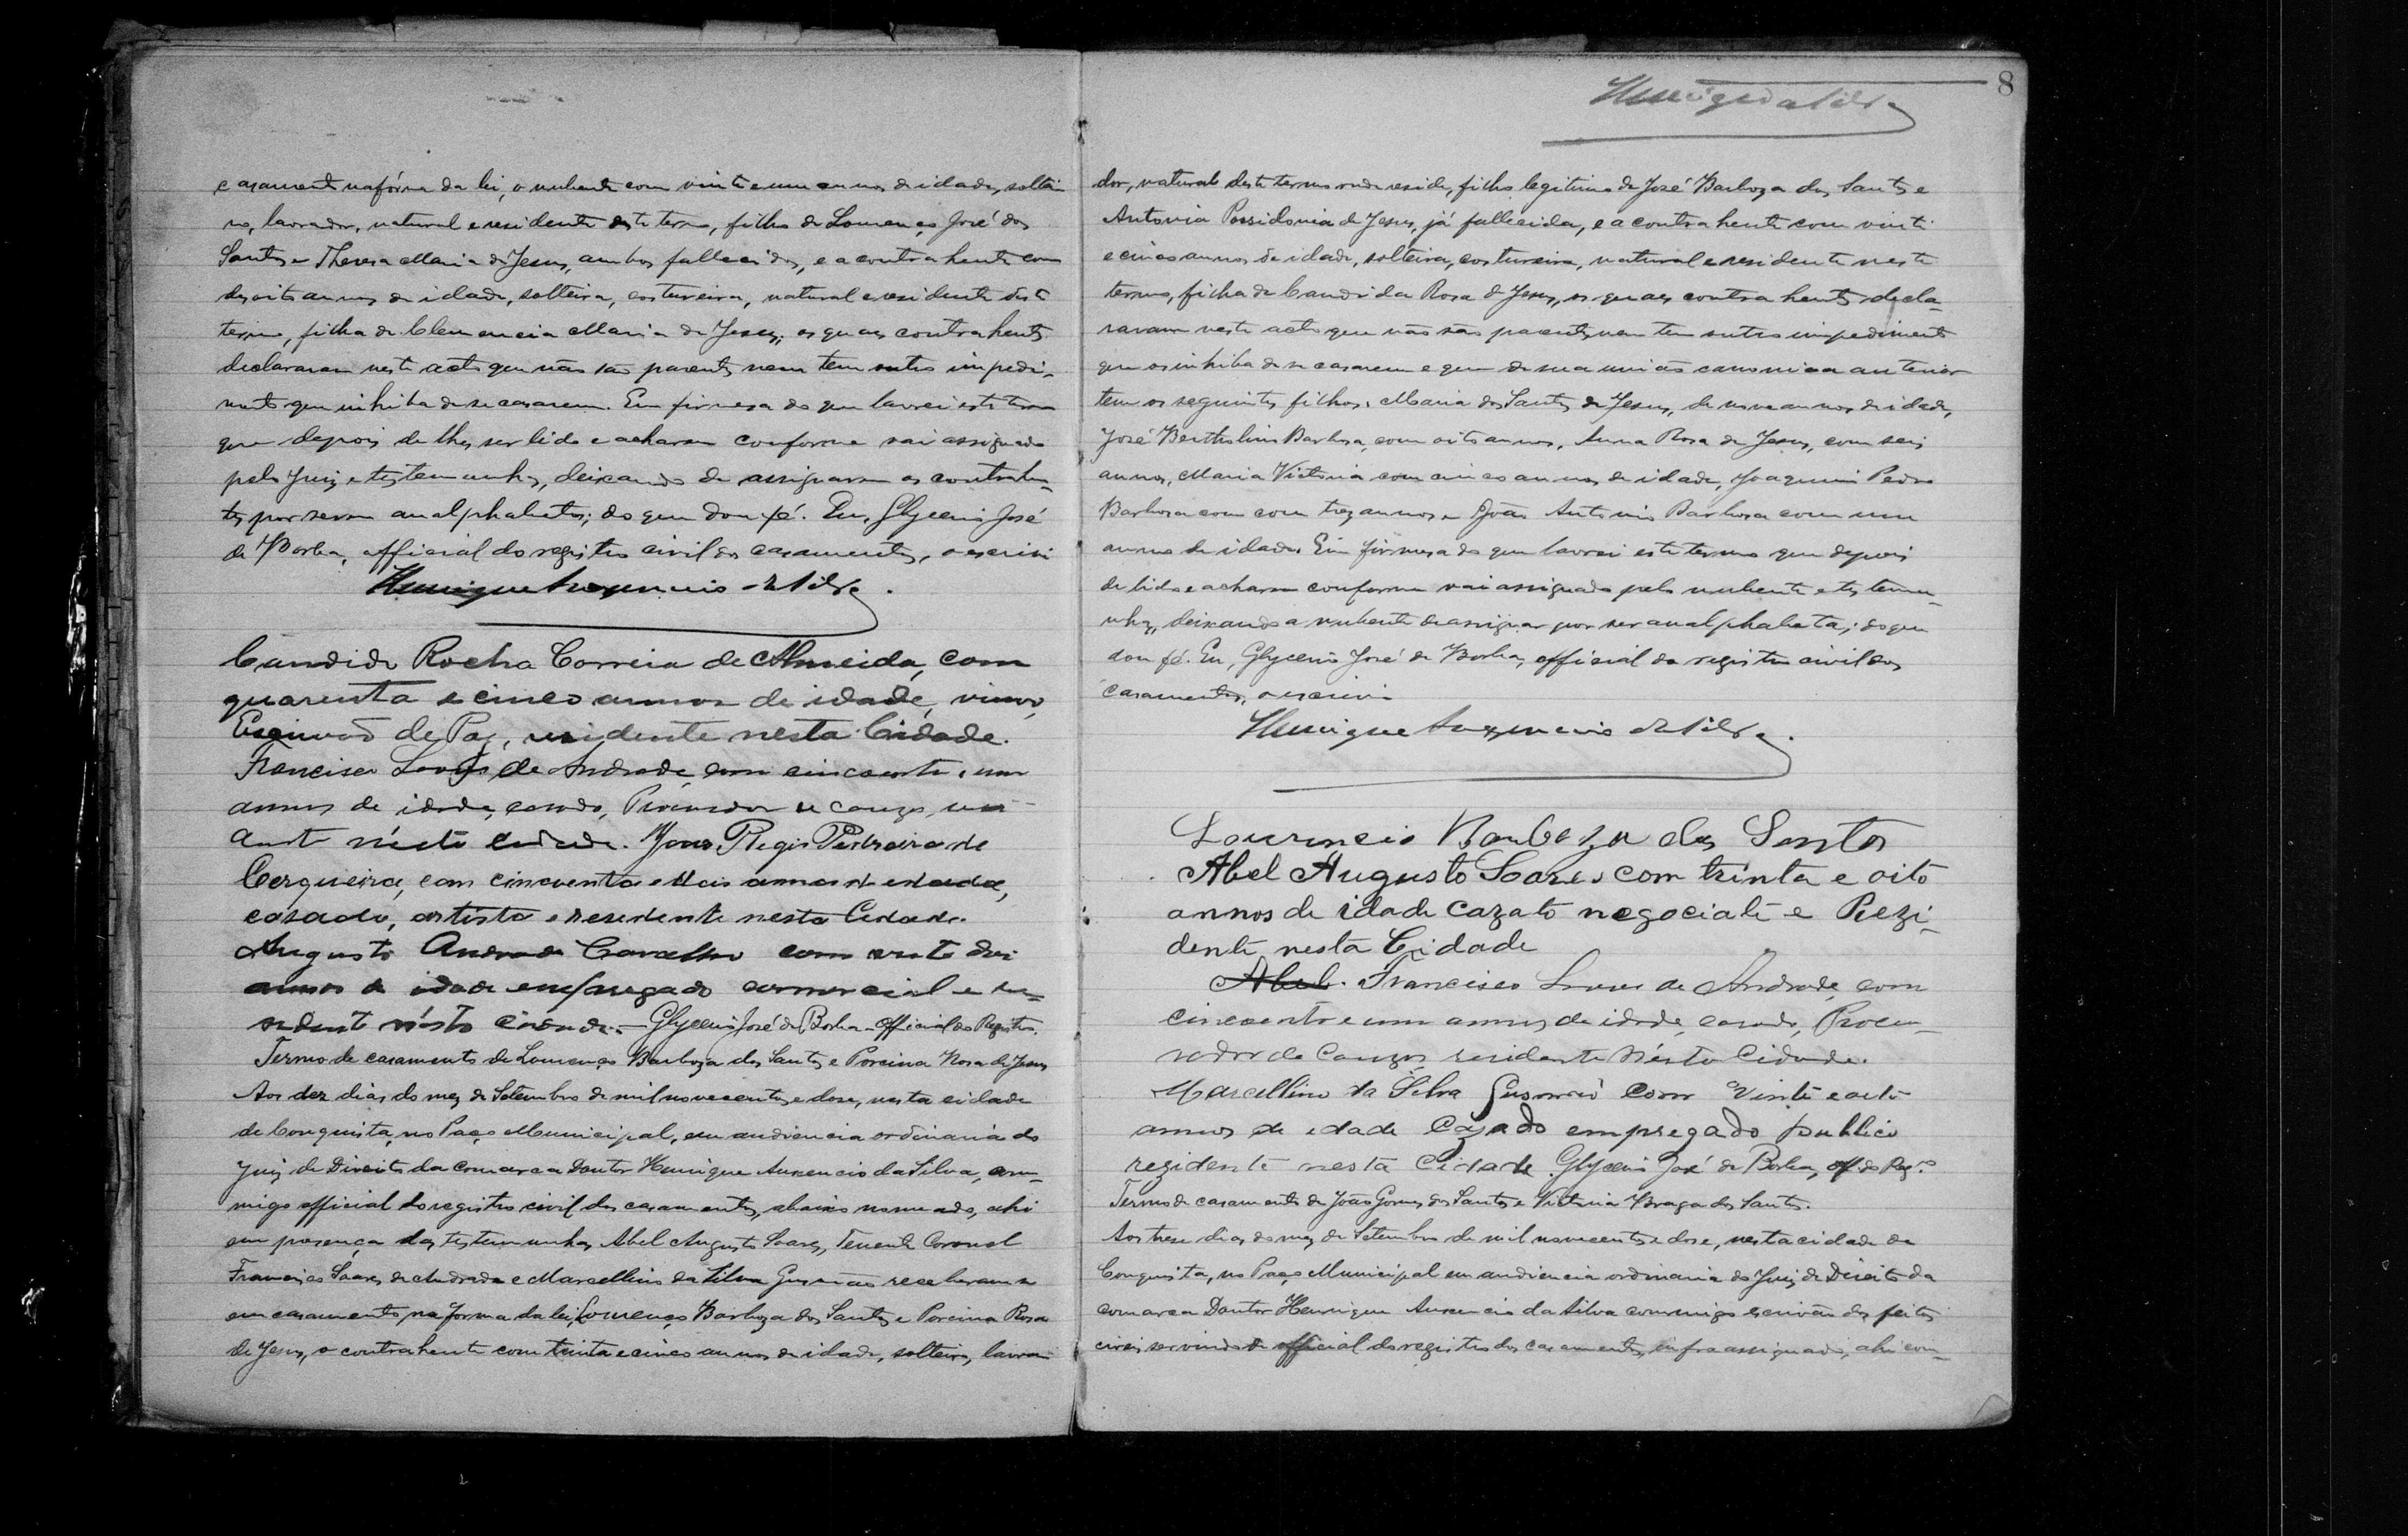 casamento na fórma da lei, o nubente com vinte e um annos de idade, soltei
ro, lavrador, natural e residente deste termo, filho de Lourenço José dos
Santos e Theresa Maria de Jesus, ambos fallecidos, e a contrahente com
desoito annos de idade, solteira, costureira, natural e residente deste
termo, filha de Clemencia Maria de Jesus, os quaes contrahentes
declararam neste acto que não são parentes nem tem outro impedi-
mento que inhiba de se casarem. Em firmesa do que lavrei este termo
que depois de lhes ser lido e acharem conforme vai assignado
pelo Juiz e testemunhas, deixando de assignarem os contrahen-
tes por serem analphabetos; do que dou fé. Eu, Glycerio José
de Borba, official do registro civil dos casamentos, o escrivi
Henrique Auxencio da Silva.
Candido Rocha Correia de Almeida, com
quarenta e cinco annos de idade, viuvo,
Escrivão de Paz, residente nesta Cidade.
Francisco Soares de Andrade, com cincoenta e um
annos de idade, casado, Procurador de cauzas, resi-
dente nésta cidade. Regis Pedreira de
Cerqueira, com cincoenta e dois annos de edade,
casado, artista e resedente nesta Cedade.
Augusto Andrade Carvalho com vinte dois
annos de idade empregado comercial e re-
sedente nésta cidade. — Glycerio José de Borba - Official do Registro.
Termo de casamento de Lourenço Barboza dos Santos e Porcina Rosa de Jesus
Aos dez dias do mez de Setembro de mil novecentos e dose, nesta cidade
de Conquista, no Paço Municipal, em audiencia ordinaria do
Juiz de Direito da comarca Doutor Henrique Auxencio da Silva, com-
migo official do registro civil dos casamentos, abaixo nomeado, ahi
em presença das testemunhas Abel Augusto Soares, Tenente Coronel
Francisco Soares de Andrade e Marcellino da Silva Gusmão receberam-se
em casamento, na forma da lei, Lourenço Barboza dos Santos e Porcina Rosa
de Jesus, o contrahente com trinta e cinco annos de idade, solteiro, lavra-
8
Henrique da Silva
dor, natural deste termo onde reside, filho legitimo de José Barboza dos Santos e
Antonia Possidonia de Jesus, já fallecida, e a contrahente com vinte
e cinco annos de idade, solteira, costureira, natural e residente neste
termo, filha de Candida Rosa de Jesus, os quaes contrahentes decla-
raram neste acto que não são parentes, nem tem outro impedimento
que os inhiba de se casarem e que de sua união canonica anterior
tem os seguintes filhos: Maria dos Santos de Jesus, de nove annos de idade,
José Bertholino Barbosa, com oito annos, Anna Rosa de Jesus, com seis
annos, Maria Victoria com cinco annos de idade, Joaquim Pedro
Barbosa com com trez annos e João Antonio Barbosa com um
anno de idade. Em firmesa do que lavrei este termo que depois
de lido e acharem conforme vai assignado pelo nubente e testemu-
nhas, deixando a nubente de assignar por ser analphabeta; do que
dou fé. Eu, Glycerio José de Borba, official do registro civil dos
casamentos, o escrivi
Henrique Auxencio da Silva.
Lourencio Barboza dos Santos
Abel Augusto Soares com trinta e oito
annos de idade cazato negociate e Rezi-
dente nesta Cidade
Abel. Francisco Soares de Andrade, com
cincoenta e um annos de idade, casado, Procu-
rador de Cauzas, residente nésta Cidade.
Marcellino da Silva Gusmão com vinte e oito
annos de edade Cazado empregado publico
rezidente nesta Cidade Glycerio José de Borba, off. do Regº
Termo de casamento de João Gomes dos Santos e Victoria Braga dos Santos.
Aos trese dias do mez de Setembro de mil novecentos e dose, nesta cidade de
Conquista, no Paço Municipal em audiencia ordinaria do Juiz de Direito da
comarca Doutor Henrique Auxencio da Silva commigo escrivão dos feitos
civeis servindo de official do registro dos casamentos, infra assignado, ahi com-